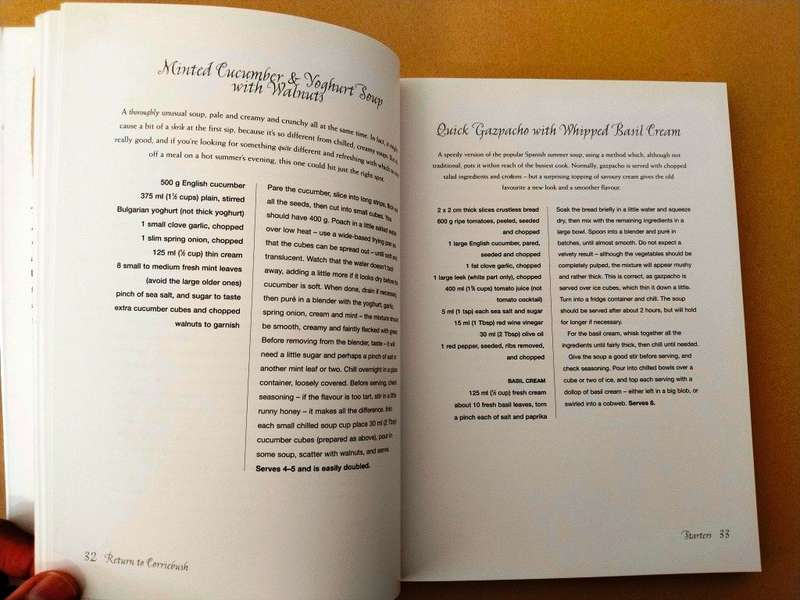 Minted Cucumber & Yoghurt Soup
with Walnuts
A thoroughly unusual soup, pale and creamy and crunchy all at the same time. In fact, it might
cause a bit of a skrik at the first sip, because it's so different from chilled, creamy soups. But
really good, and if you're looking for something quite different and refreshing with which
off a meal on a hot summer's evening, this one could hit just the right spot.
500 g English cucumber
375 ml (1½ cups) plain, stirred
Bulgarian yoghurt (not thick yoghurt)
1 small clove garlic, chopped
1 slim spring onion, chopped
125 ml (½ cup) thin cream
8 small to medium fresh mint leaves
(avoid the large older ones)
pinch of sea salt, and sugar to taste
extra cucumber cubes and chopped
walnuts to garnish
Pare the cucumber, slice into long strips, flick out
all the seeds, then cut into small cubes. You
should have 400 g. Poach in a little salted water
over low heat – use a wide-based frying pan so
that the cubes can be spread out – until soft and
translucent. Watch that the water doesn't boil
away, adding a little more if it looks dry before the
cucumber is soft. When done, drain if necessary,
then puré in a blender with the yoghurt, garlic,
spring onion, cream and mint – the mixture should
be smooth, creamy and faintly flecked with green.
Before removing from the blender, taste – it will
need a little sugar and perhaps a pinch of salt or
another mint leaf or two. Chill overnight in a glass
container, loosely covered. Before serving, check
seasoning – if the flavour is too tart, stir in a little
runny honey – it makes all the difference. Into
each small chilled soup cup place 30 ml (2 Tbsp)
cucumber cubes (prepared as above), pour in
some soup, scatter with walnuts, and serve.
Serves 4–5 and is easily doubled.
32 Return to Corriebush
Quick Gazpacho with Whipped Basil Cream
A speedy version of the popular Spanish summer soup, using a method which, although not
traditional, puts it within reach of the busiest cook. Normally, gazpacho is served with chopped
salad ingredients and croûtons – but a surprising topping of savoury cream gives the old
favourite a new look and a smoother flavour.
2 x 2 cm thick slices crustless bread
600 g ripe tomatoes, peeled, seeded
and chopped
1 large English cucumber, pared,
seeded and chopped
1 fat clove garlic, chopped
1 large leek (white part only), chopped
400 ml (1⅗ cups) tomato juice (not
tomato cocktail)
5 ml (1 tsp) each sea salt and sugar
15 ml (1 Tbsp) red wine vinegar
30 ml (2 Tbsp) olive oil
1 red pepper, seeded, ribs removed,
and chopped
BASIL CREAM
125 ml (½ cup) fresh cream
about 10 fresh basil leaves, torn
a pinch each of salt and paprika
Soak the bread briefly in a little water and squeeze
dry, then mix with the remaining ingredients in a
large bowl. Spoon into a blender and puré in
batches, until almost smooth. Do not expect a
velvety result – although the vegetables should be
completely pulped, the mixture will appear mushy
and rather thick. This is correct, as gazpacho is
served over ice cubes, which thin it down a little.
Turn into a fridge container and chill. The soup
should be served after about 2 hours, but will hold
for longer if necessary.
For the basil cream, whisk together all the
ingredients until fairly thick, then chill until needed.
Give the soup a good stir before serving, and
check seasoning. Pour into chilled bowls over a
cube or two of ice, and top each serving with a
dollop of basil cream – either left in a big blob, or
swirled into a cobweb. Serves 8.
Starters 33